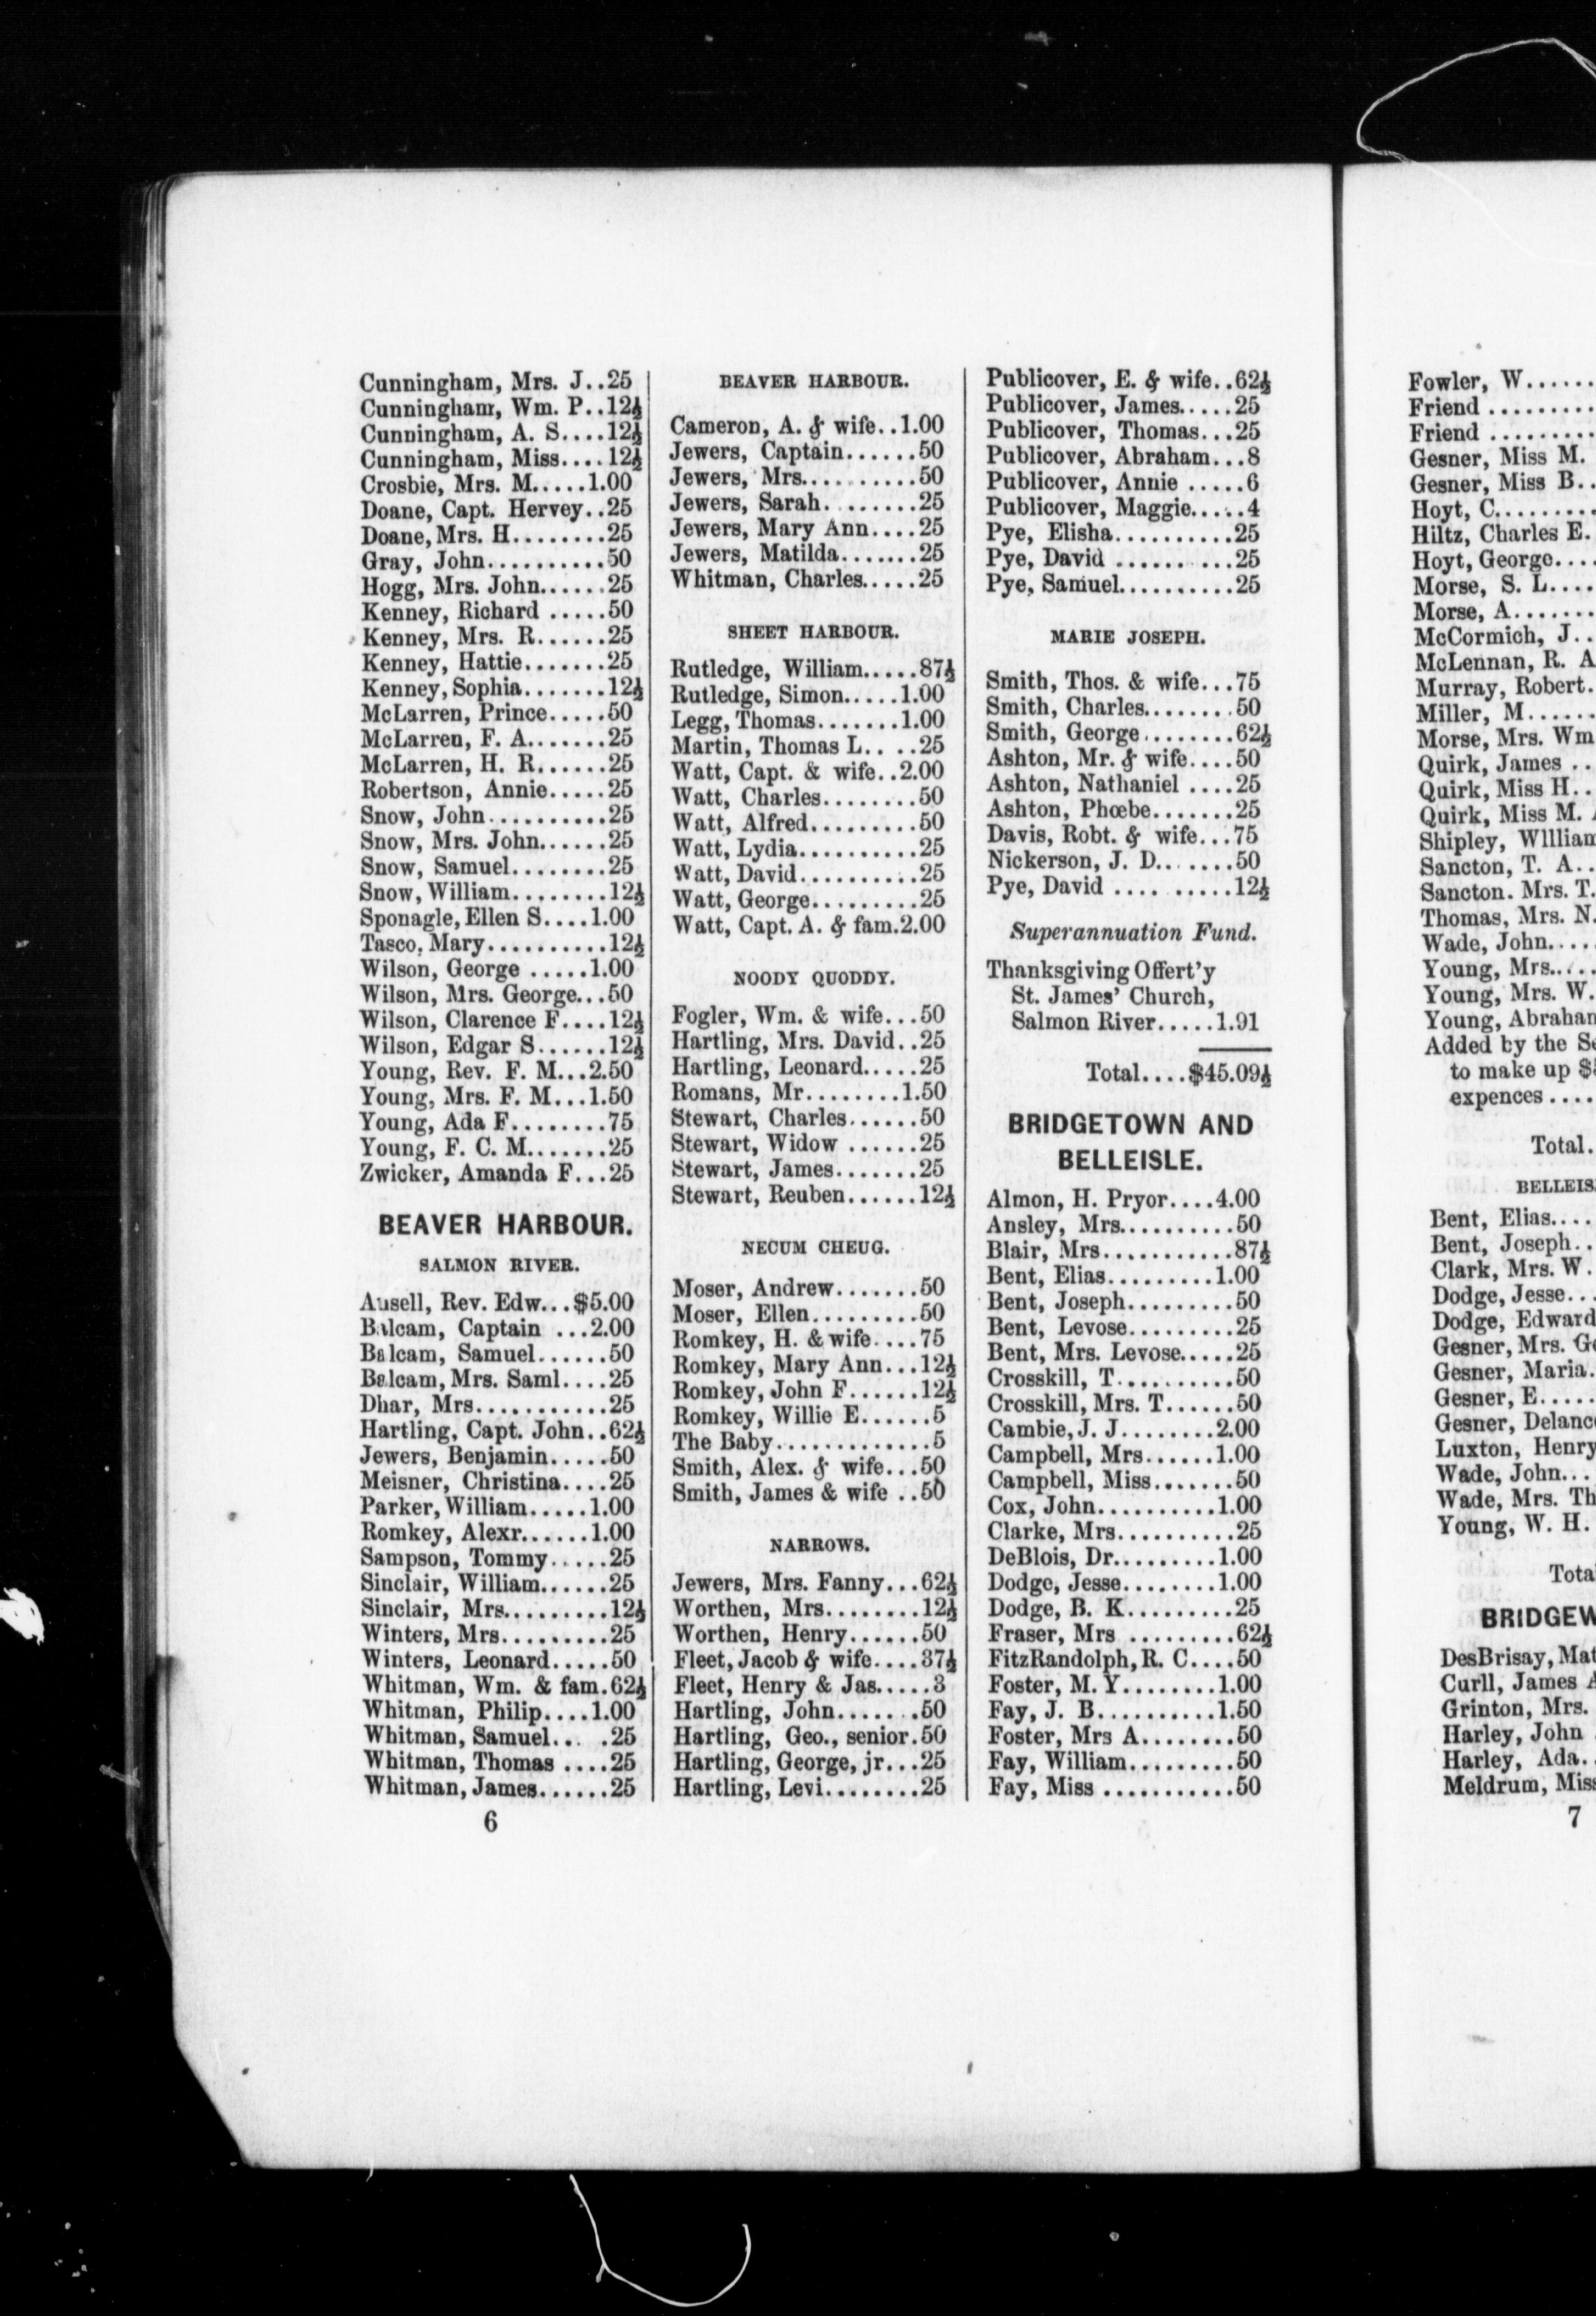 Cunningham, Mrs. J..25
Cunningham, Wm. P..12½
Cunningham, A. S....12½
Cunningham, Miss....12½
Crosbie, Mrs. M.....1.00
Doane, Capt. Hervey..25
Doane, Mrs. H........25
Gray, John..........50
Hogg, Mrs. John......25
Kenney, Richard .....50
Kenney, Mrs. R......25
Kenney, Hattie.......25
Kenney, Sophia.......12½
McLarren, Prince.....50
McLarren, F. A.......25
McLarren, H. R......25
Robertson, Annie.....25
Snow, John..........25
Snow, Mrs. John......25
Snow, Samuel........25
Snow, William........12½
Sponagle, Ellen S....1.00
Tasco, Mary..........12½
Wilson, George .....1.00
Wilson, Mrs. George...50
Wilson, Clarence F....12½
Wilson, Edgar S......12½
Young, Rev. F. M...2.50
Young, Mrs. F. M...1.50
Young, Ada F........75
Young, F. C. M.......25
Zwicker, Amanda F...25
BEAVER HARBOUR.
SALMON RIVER.
Ansell, Rev. Edw...$5.00
Balcam, Captain ...2.00
Balcam, Samuel......50
Balcam, Mrs. Saml....25
Dhar, Mrs...........25
Hartling, Capt. John..62½
Jewers, Benjamin.....50
Meisner, Christina....25
Parker, William.....1.00
Romkey, Alexr......1.00
Sampson, Tommy.....25
Sinclair, William......25
Sinclair, Mrs.........12½
Winters, Mrs.........25
Winters, Leonard.....50
Whitman, Wm. & fam.62½
Whitman, Philip....1.00
Whitman, Samuel... .25
Whitman, Thomas ....25
Whitman, James......25
6
BEAVER HARBOUR.
Cameron, A. & wife..1.00
Jewers, Captain......50
Jewers, Mrs..........50
Jewers, Sarah. .......25
Jewers, Mary Ann....25
Jewers, Matilda.......25
Whitman, Charles.....25
SHEET HARBOUR.
Rutledge, William.....87½
Rutledge, Simon.....1.00
Legg, Thomas.......1.00
Martin, Thomas L.. ..25
Watt, Capt. & wife..2.00
Watt, Charles........50
Watt, Alfred.........50
Watt, Lydia..........25
Watt, David..........25
Watt, George.........25
Watt, Capt. A. & fam.2.00
NOODY QUODDY.
Fogler, Wm. & wife...50
Hartling, Mrs. David..25
Hartling, Leonard.....25
Romans, Mr........1.50
Stewart, Charles......50
Stewart, Widow ......25
Stewart, James.......25
Stewart, Reuben......12½
NECUM CHEUG.
Moser, Andrew.......50
Moser, Ellen.........50
Romkey, H. & wife....75
Romkey, Mary Ann...12½
Romkey, John F......12½
Romkey, Willie E......5
The Baby.............5
Smith, Alex. & wife...50
Smith, James & wife ..50
NARROWS.
Jewers, Mrs. Fanny...62½
Worthen, Mrs........12½
Worthen, Henry......50
Fleet, Jacob & wife....37½
Fleet, Henry & Jas.....3
Hartling, John.......50
Hartling, Geo., senior.50
Hartling, George, jr...25
Hartling, Levi........25
Publicover, E. & wife..62½
Publicover, James.....25
Publicover, Thomas...25
Publicover, Abraham...8
Publicover, Annie .....6
Publicover, Maggie.....4
Pye, Elisha..........25
Pye, David ..........25
Pye, Samuel..........25
MARIE JOSEPH.
Smith, Thos. & wife...75
Smith, Charles........50
Smith, George........62½
Ashton, Mr. & wife....50
Ashton, Nathaniel ....25
Ashton, Phœbe.......25
Davis, Robt. & wife...75
Nickerson, J. D.......50
Pye, David .... .....12½
Superannuation Fund.
Thanksgiving Offert'y
St. James' Church,
Salmon River.....1.91
Total....$45.09½
BRIDGETOWN AND
BELLEISLE.
Almon, H. Pryor....4.00
Ansley, Mrs..........50
Blair, Mrs...........87½
Bent, Elias.........1.00
Bent, Joseph.........50
Bent, Levose.........25
Bent, Mrs. Levose.....25
Crosskill, T..........50
Crosskill, Mrs. T......50
Cambie, J. J........2.00
Campbell, Mrs......1.00
Campbell, Miss.......50
Cox, John..........1.00
Clarke, Mrs..........25
DeBlois, Dr.........1.00
Dodge, Jesse........1.00
Dodge, B. K.........25
Fraser, Mrs .........62½
FitzRandolph, R. C....50
Foster, M. Y........1.00
Fay, J. B..........1.50
Foster, Mrs A........50
Fay, William.........50
Fay, Miss ...........50
Fowler, W......
Friend .........
Friend .........
Gesner, Miss M.
Gesner, Miss B..
Hoyt, C.........
Hiltz, Charles E.
Hoyt, George....
Morse, S. L....
Morse, A.......
McCormich, J..
McLennan, R. A
Murray, Robert.
Miller, M......
Morse, Mrs. Wm
Quirk, James ..
Quirk, Miss H..
Quirk, Miss M.
Shipley, Wllliam
Sancton, T. A..
Sancton. Mrs. T.
Thomas, Mrs. N.
Wade, John....
Young, Mrs.....
Young, Mrs. W.
Young, Abraham
Added by the Se
to make up $
expences ....
Total.
BELLEIS
Bent, Elias....
Bent, Joseph..
Clark, Mrs. W.
Dodge, Jesse...
Dodge, Edward
Gesner, Mrs. Ge
Gesner, Maria.
Gesner, E.....
Gesner, Delanc
Luxton, Henry
Wade, John...
Wade, Mrs. Th
Young, W. H.
Tota
BRIDGEW
DesBrisay, Mat
Curll, James A
Grinton, Mrs.
Harley, John
Harley, Ada.
Meldrum, Miss
7